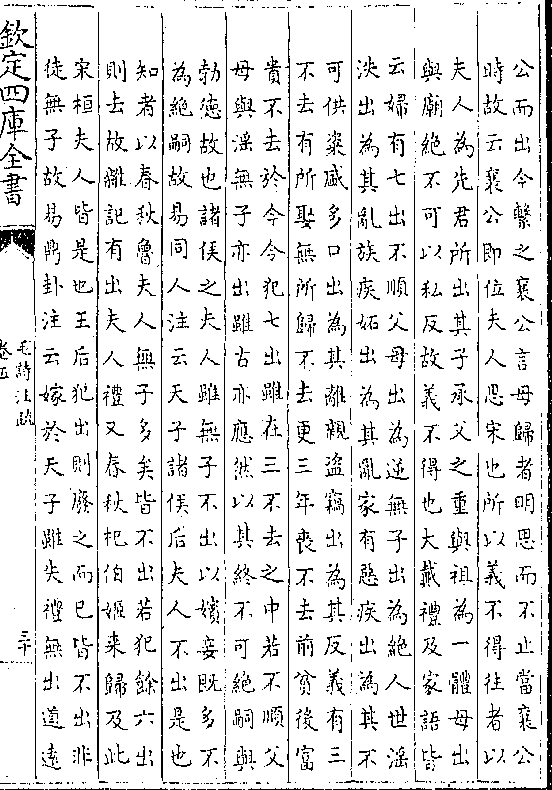 公而出今繫之襄公言母歸者明思而不止當襄公
時故云襄公即位夫人思宋也所以義不得往者以
夫人為先君所出其子承父之重與祖為一體母出
與廟絕不可以私反故義不得也大戴禮及家語皆
云婦有七出不順父母出為逆無子出為絕人世淫
泆出為其亂族疾妬出為其亂家有惡疾出為其不
可供粢盛多口出為其離親盜竊出為其反義有三
不去有所娶無所歸不去更三年喪不去前貧後富
貴不去於今令犯七出雖在三不去之中若不順父
母與淫無子亦出雖古亦應然以其終不可絕嗣與
勃德故也諸侯之夫人雖無子不出以嬪妾既多不
為絕嗣故易同人注云天子諸侯后夫人不出是也
知者以春秋魯夫人無子多矣皆不出若犯餘六出
則去故雜記有出夫人禮又春秋杞伯姬來歸及此
宋桓夫人皆是也王后犯出則廢之而已皆不出非
徒無子故易鼎卦注云嫁於天子雖失禮無出道遠
欽定四庫全書
毛詩注疏
卷五
三十